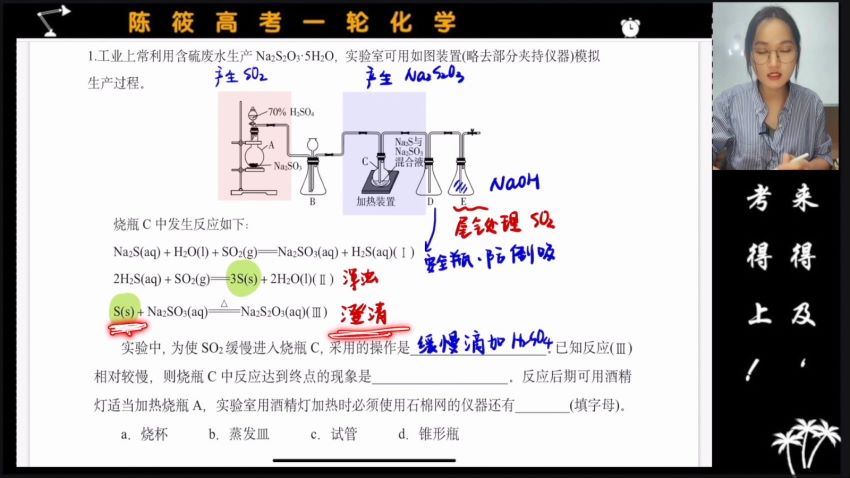 陈筱高考一轮化学
1.工业上常利用含硫废水生产 Na₂S₂O₃·5H₂O, 实验室可用如图装置(略去部分夹持仪器)模拟
产生 SO₂
产生 Na₂S₂O₃
生产过程。
70% H₂SO₄
A
Na₂SO₃
B
Na₂S与
Na₂SO₃
混合液
C
加热装置
D
E
NaOH
尾气处理 SO₂
安全瓶·防倒吸
烧瓶 C 中发生反应如下:
Na₂S(aq)+H₂O(l)+SO₂(g)══Na₂SO₃(aq)+H₂S(aq)(Ⅰ)
2H₂S(aq)+SO₂(g)══3S(s)+2H₂O(l)(Ⅱ) 浑浊
S(s)+Na₂SO₃(aq)══△Na₂S₂O₃(aq)(Ⅲ) 澄清
实验中, 为使 SO₂ 缓慢进入烧瓶 C, 采用的操作是 缓慢滴加 H₂SO₄ 。已知反应(Ⅲ)
相对较慢, 则烧瓶 C 中反应达到终点的现象是____________________。反应后期可用酒精
灯适当加热烧瓶 A, 实验室用酒精灯加热时必须使用石棉网的仪器还有________(填字母)。
a. 烧杯 b. 蒸发皿 c. 试管 d. 锥形瓶
来得及、
考得上!